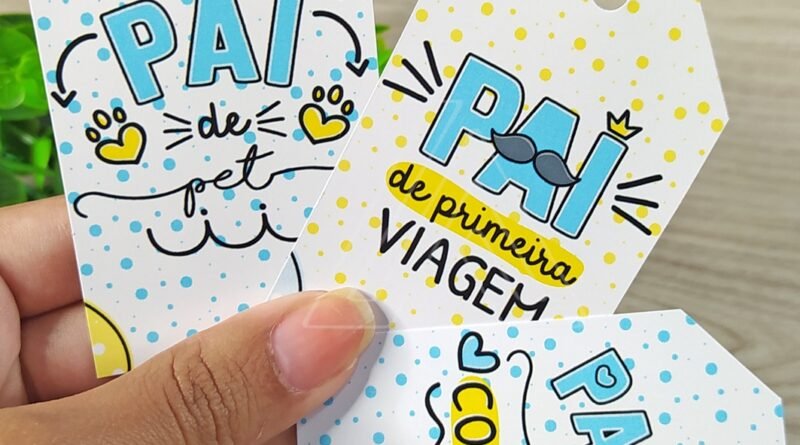 PAI
de
pet
PAI
de primeira
VIAGEM
CO
PA